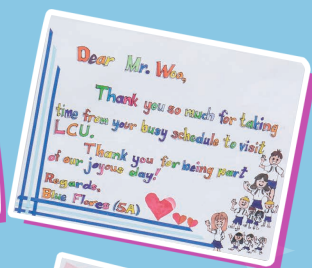 Dear Mr. Woo,
Thank you so much for taking
time from your busy schedule to visit
L.C.U.
Thank you for being part
of our joyous day!
Regards,
Blue Flores (5A)